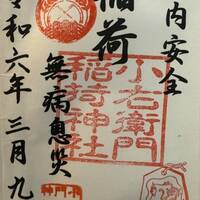 内安全
稲荷
無病息災
令和六年三月九
小右衛門
稲荷神社